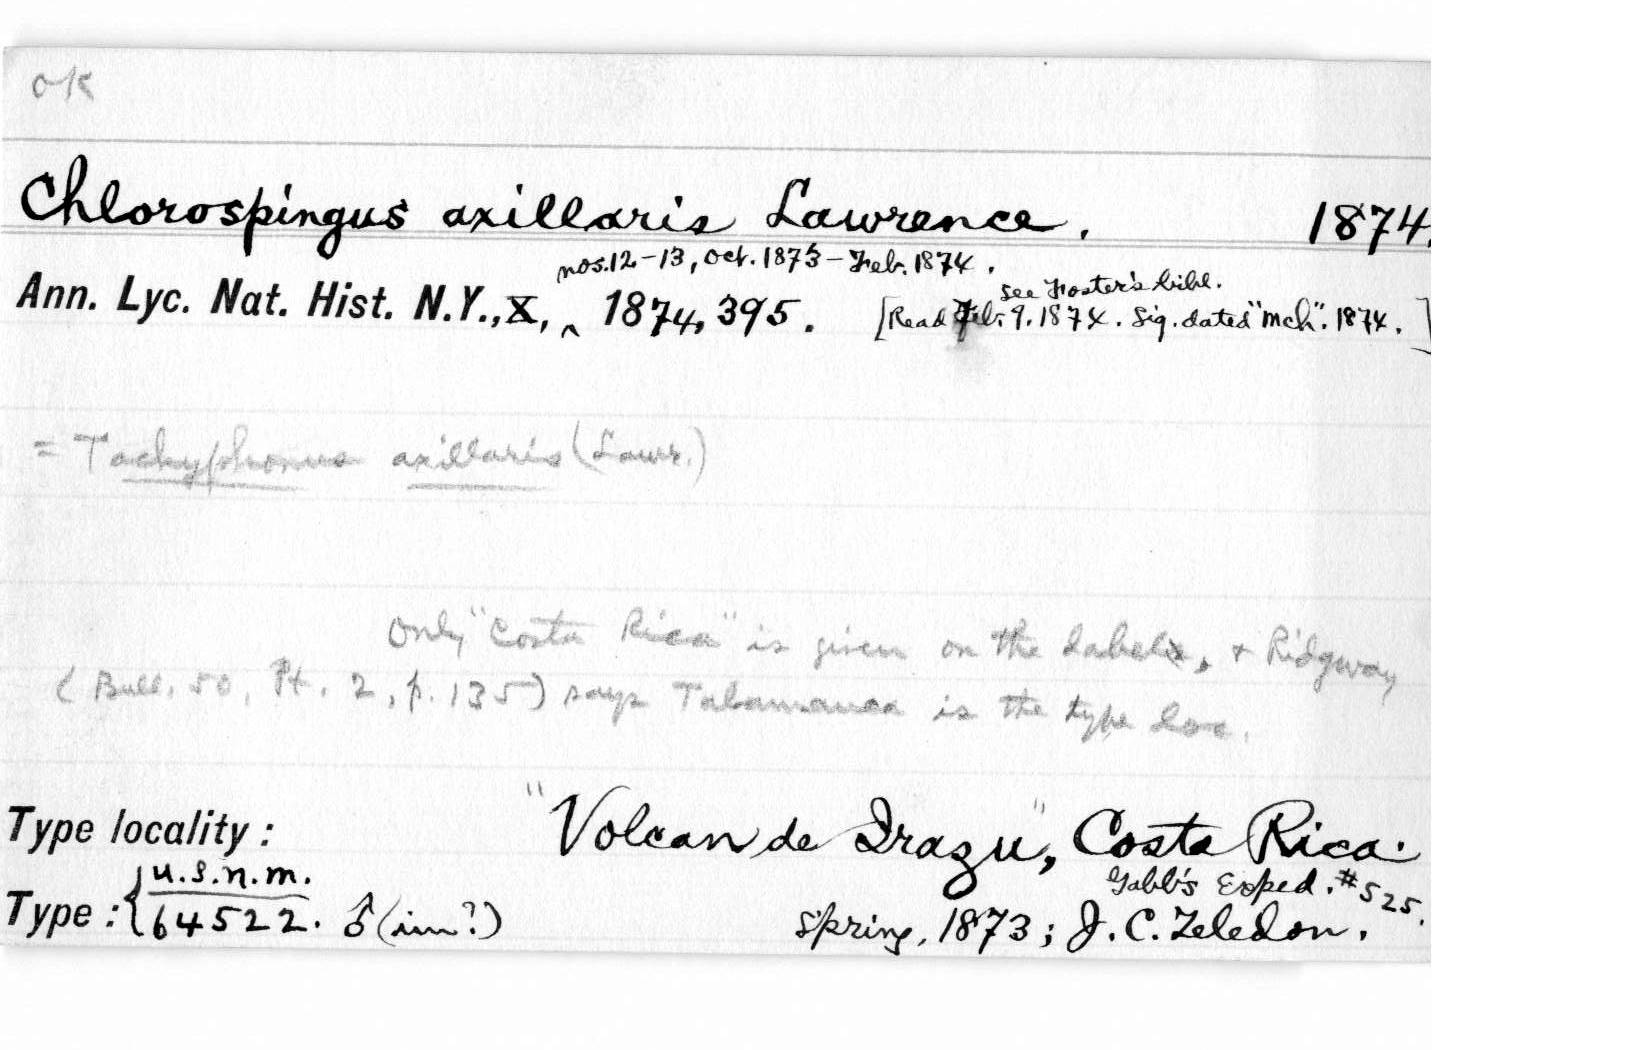 OK
Chlorospingus axillaris Lawrence. 1874.
nos. 12-13, Oct. 1873 – Feb. 1874.
see Foster's bibl.
Ann. Lyc. Nat. Hist. N.Y., X, ‸ 1874, 395. [Read Feb. 9. 1874. Sig. dated "Mch". 1874.]
= Tachyphonus axillaris (Lawr.)
Only "Costa Rica" is given on the labels, + Ridgway
(Bull. 50, Pt. 2, p. 135) says Talamanca is the type loc.
Type locality: "Volcan de Irazu", Costa Rica.
Gabb's Exped. #525.
Type: { U.S.N.M.
64522. ♂ (im?) Spring, 1873; J. C. Zeledon.